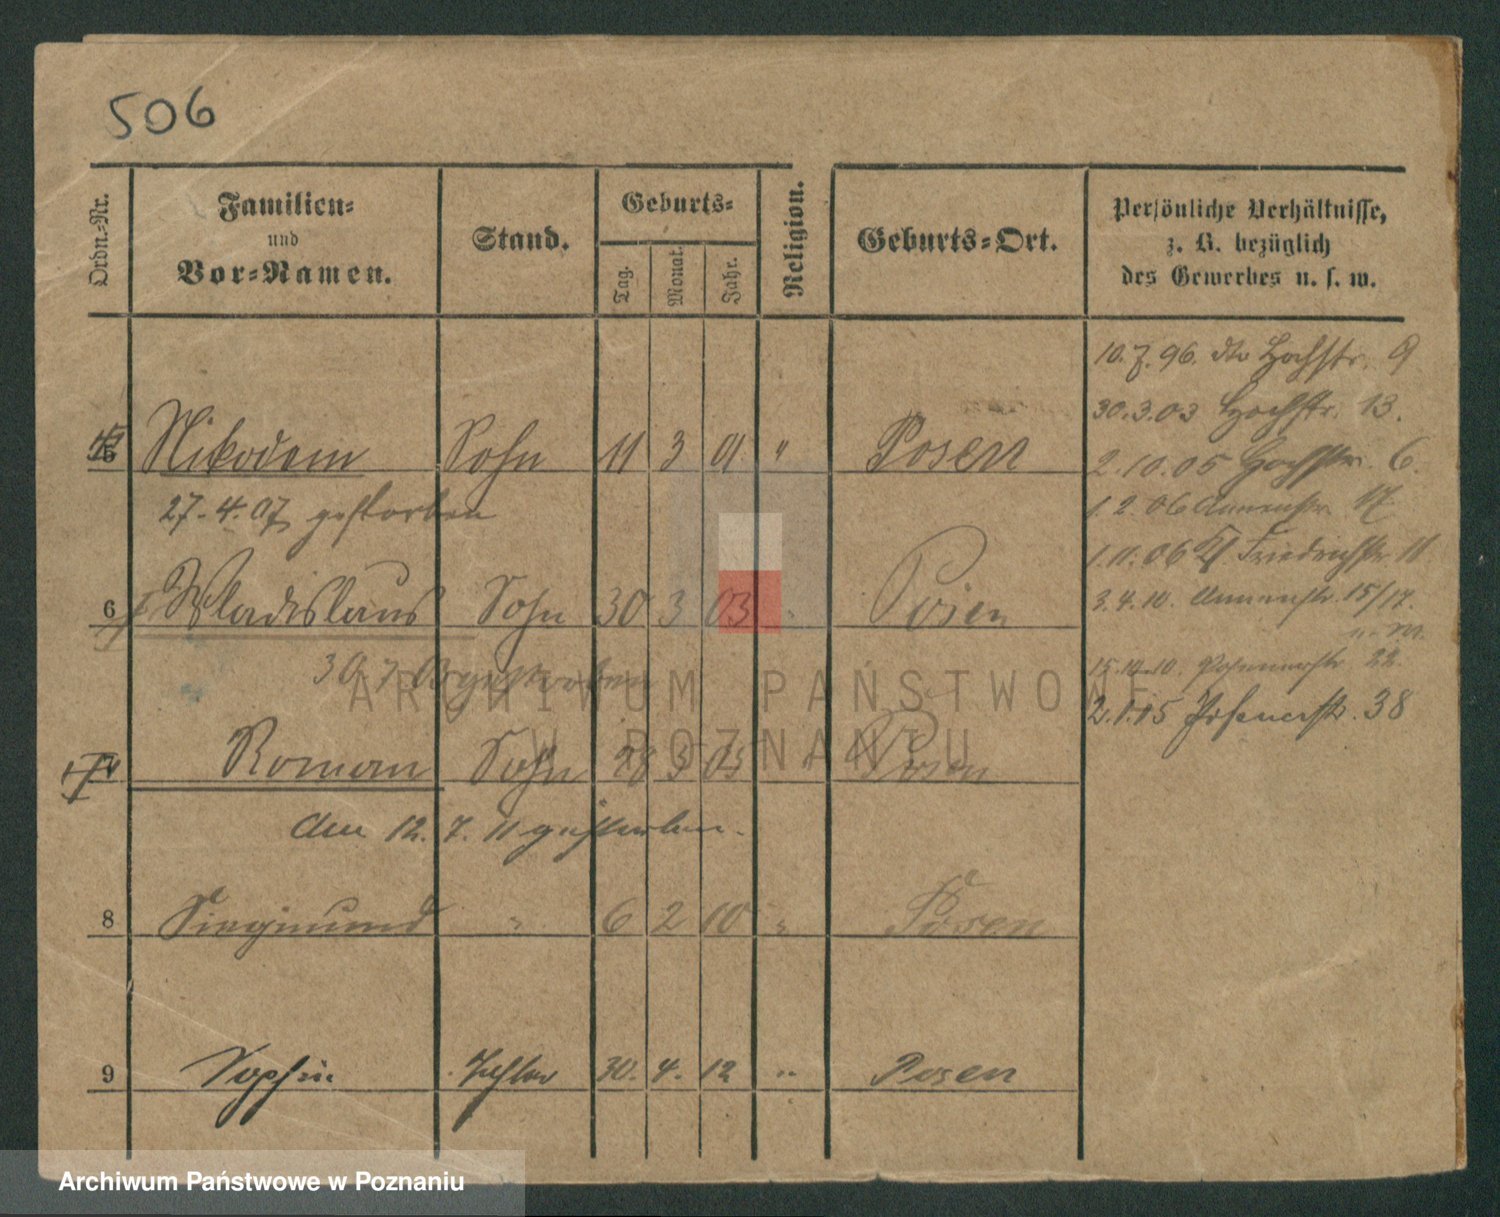 506
Ordn.-Nr.
Familien-
und
Vor-Namen.
Stand.
Geburts-
Tag.
Monat.
Jahr.
Religion.
Geburts-Ort.
Persönliche Verhältnisse,
z. B. bezüglich
des Gewerbes u. s. w.
10.7.96. Hochstr. 9
30.3.03 Hochstr. 13.
5 Nikodem Sohn 11 3 01. " Posen
2.10.05 Hochstr. 6.
27.4.07 gestorben
1.2.06 Annenstr. 17
1.11.06 Friedrichstr. 11
6 Wladislaus Sohn 30 3 03 " Posen
3.4.10. Annenstr. 15/17.
30 7 gestorben
15.10.10. Posenerstr. 22.
2.1.15 Posenerstr. 38
ARCHIWUM PAŃSTWOWE
W POZNANIU
Roman Sohn 28 3 05 Posen
am 12. 7. 11 gestorben.
8 Siegmund " 6 2 10 " Posen
9 Sophie Tochter 30. 4. 12 " Posen
Archiwum Państwowe w Poznaniu